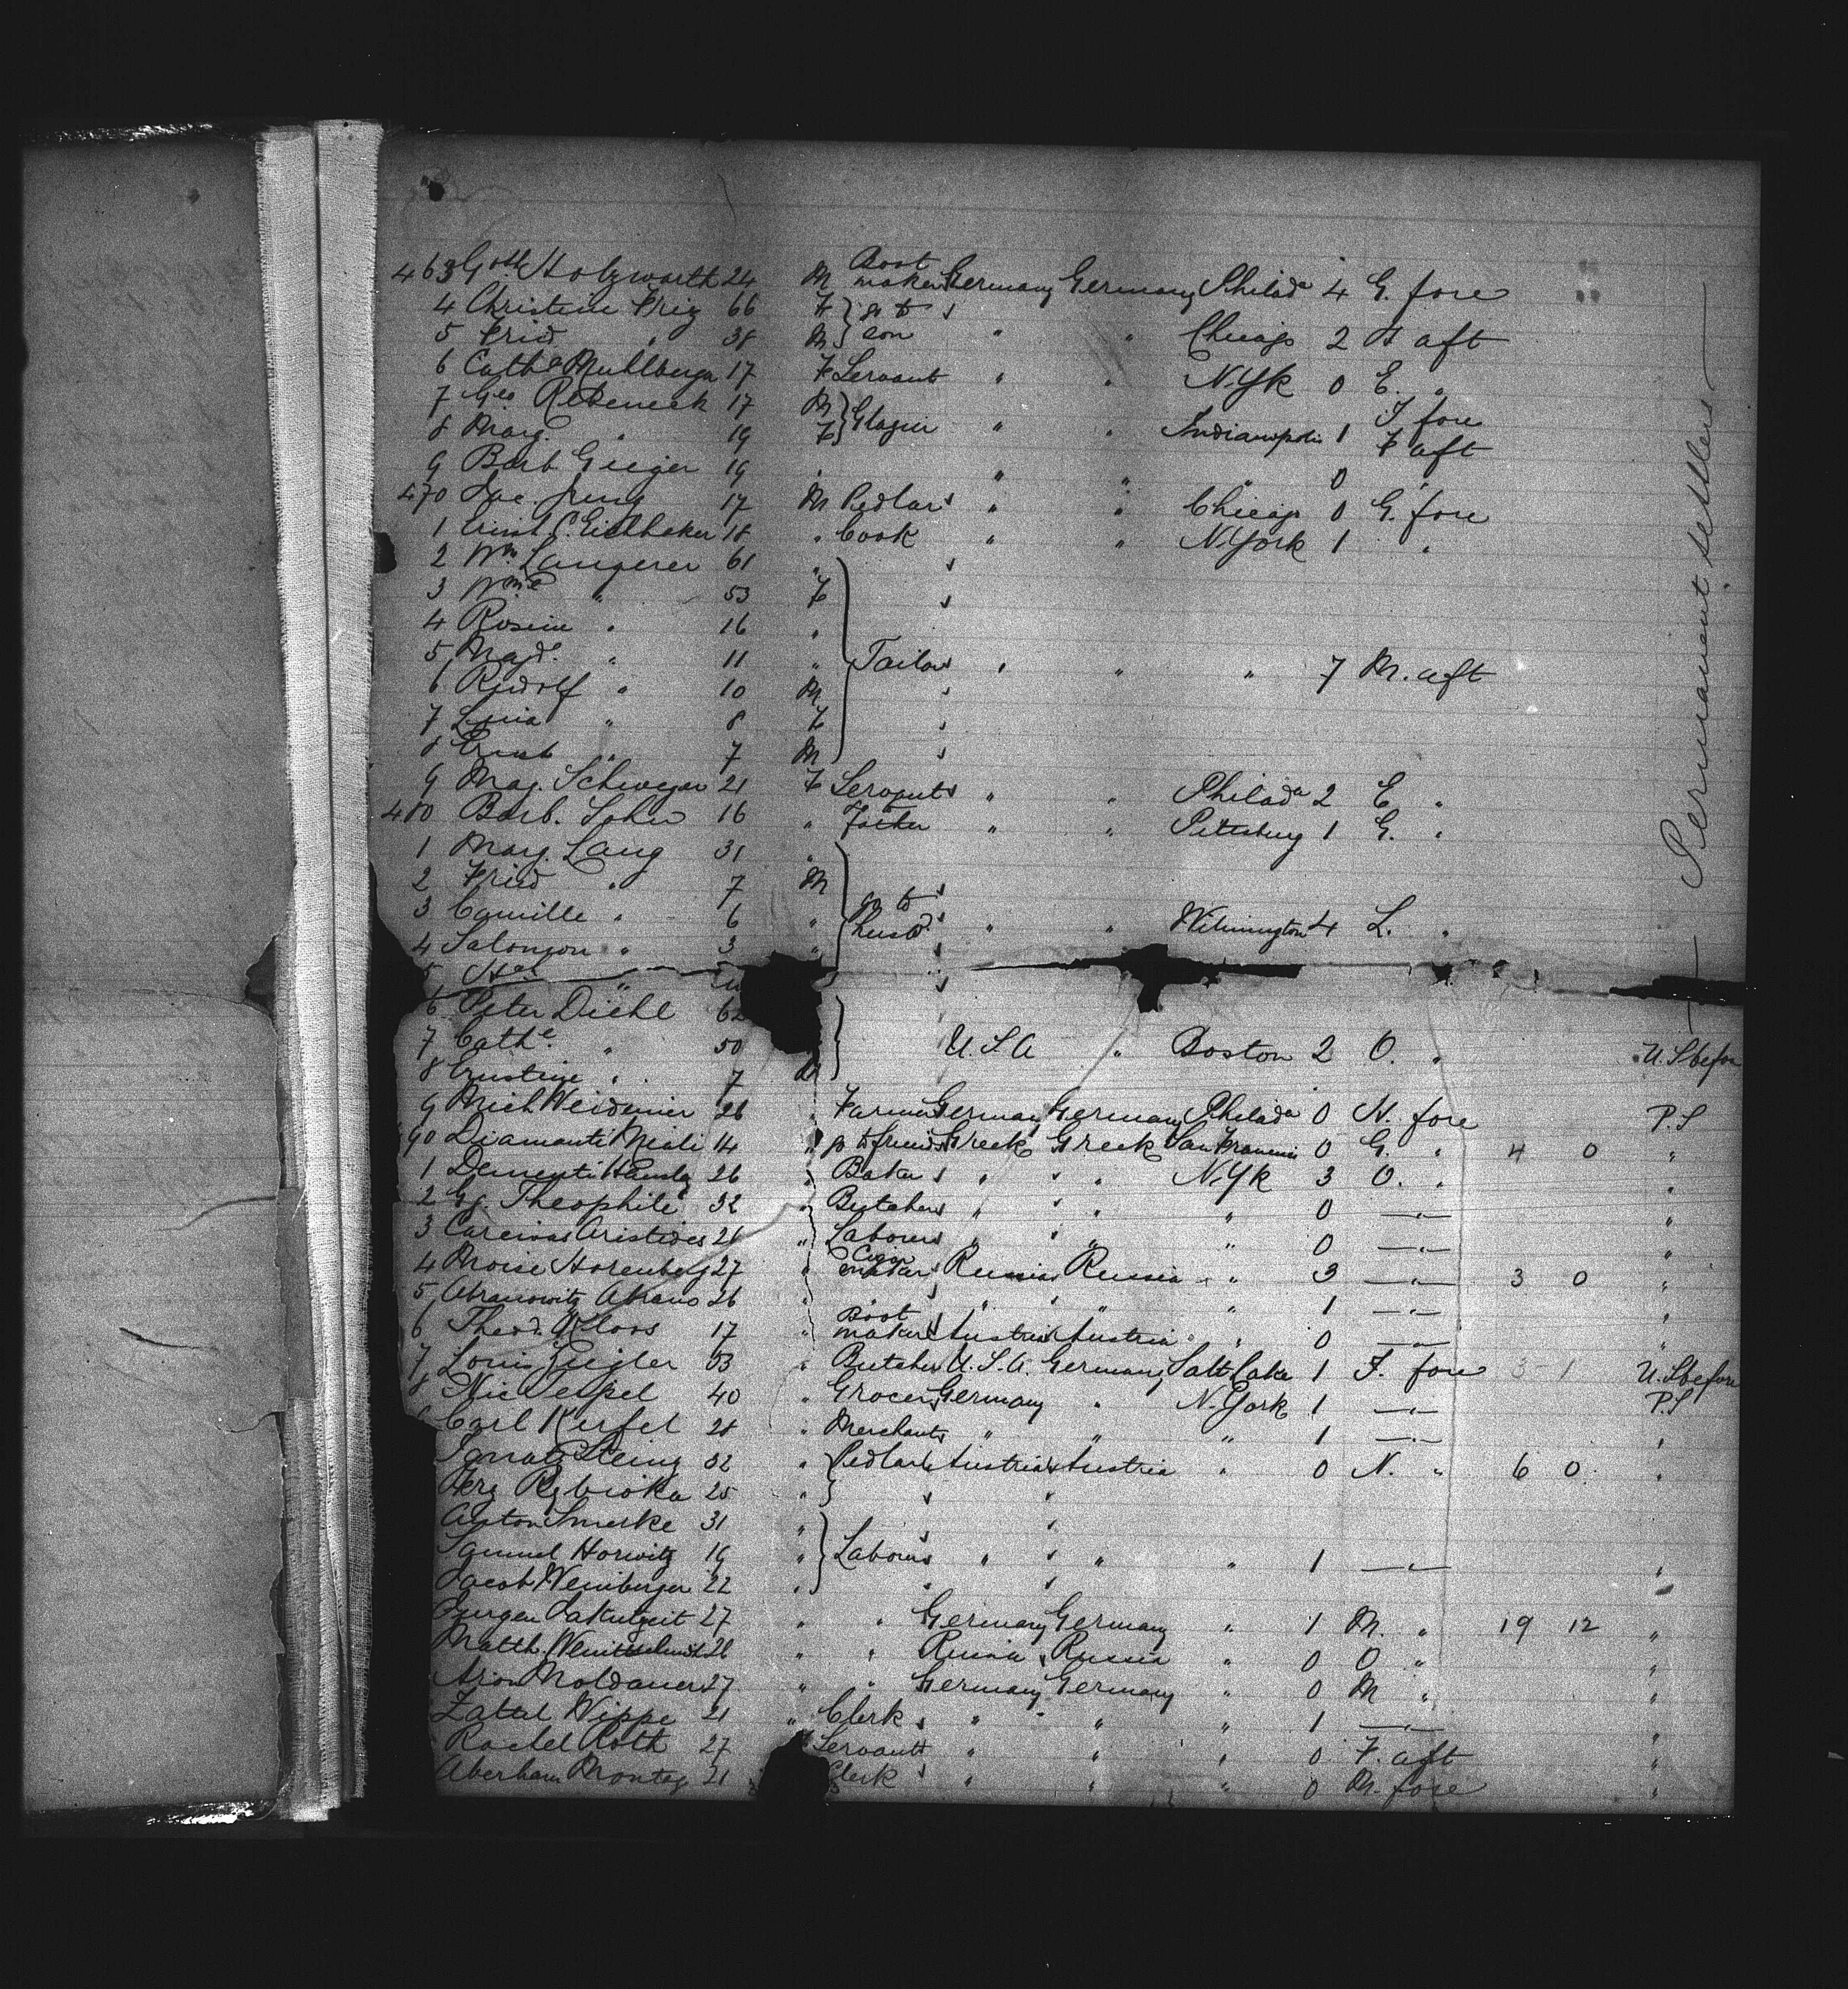 463 Gottl Holzwarth 24 M Boot maker Germany Germany Philada 4 G. fore
4 Christine Friz 66 F } go to
5 Fried " 38 M } son " " Chicago 2 H aft
6 Cathe Muhlberger 17 F Servant " " N.Yk 0 E. "
7 Geo 17 M } Glazier " " Indianapolis 1 J fore
8 Marg. " 19 F } F aft
9 Barb. Geiger 19 " " " " 0 "
470 Jac. Jung 17 M Pedlar " " Chicago 0 G. fore
1 Ernst C. 18 " Cook " " N.York 1 "
2 Wm Langerer 61 "
3 Wme " 53 F
4 Rosine " 16 "
5 Magd. " 11 " Tailor " " " 7 M. aft
6 Rudolf " 10 M
7 " 8 F
8 Ernst " 7 M
9 Mag. Schweyer 21 F Servant " " Philada 2 E "
480 Barb. 16 " Father " " Pittsburg 1 G. "
1 Marg. Lang 31 "
2 Fried " 7 M go to
3 Camille " 6 " husbd " " Wilmington 4 L. "
4 Salomon " 3 "
5 "
6 Peter Diehl 62
7 Cathe " 50 U.S.A " Boston 2 O. " U.S before
8 Ernstine " 7
9 Mich Weidmier 26 " Farmer Germany Germany Philada 0 N. fore P.S
90 Diamanti 14 " go to friend Greek Greek San Francisco 0 G. " 4 0 "
1 Dementi 26 " Baker " " N.Yk 3 O. " "
2 Theophile 32 " Butcher " " " 0 —"— "
3 Aristides 21 " Laborer " " " 0 —"— "
4 Moise Horenberg 27 " Cigar maker Russia Russia " 3 —"— 3 0 "
5 Abranowitz Abrams 26 " " " " 1 —"— "
6 Theod. 17 " Boot maker Austria Austria " 0 —"— "
7 Louis Ziegler 53 " Butcher U.S.A. Germany Salt Lake 1 J. fore 3 1 U.S before
8 Nic 40 " Grocer Germany " N.York 1 —"— P.S
Carl Kerfel 28 " Merchant " " " 1 —"— "
Ignatz Steing 32 " { Pedlar Austria Austria " 0 N. " 6 0 "
25 "
Anton Smerke 31 "
Samuel Horwitz 19 " } Laborer " " " 1 —"— "
Jacob Weinberger 22 "
27 " " Germany Germany " 1 M. " 19 12 "
Matth. 28 " " Russia Russia " 0 O " "
Aron Moldauer 27 " " Germany Germany " 0 M " "
Wippe 21 " Clerk " " " 1 —"— "
Rachel Roth 27 Servant " " " 0 F. aft "
Aberham 21 Clerk " " " 0 M. fore "
— Permanent settlers —